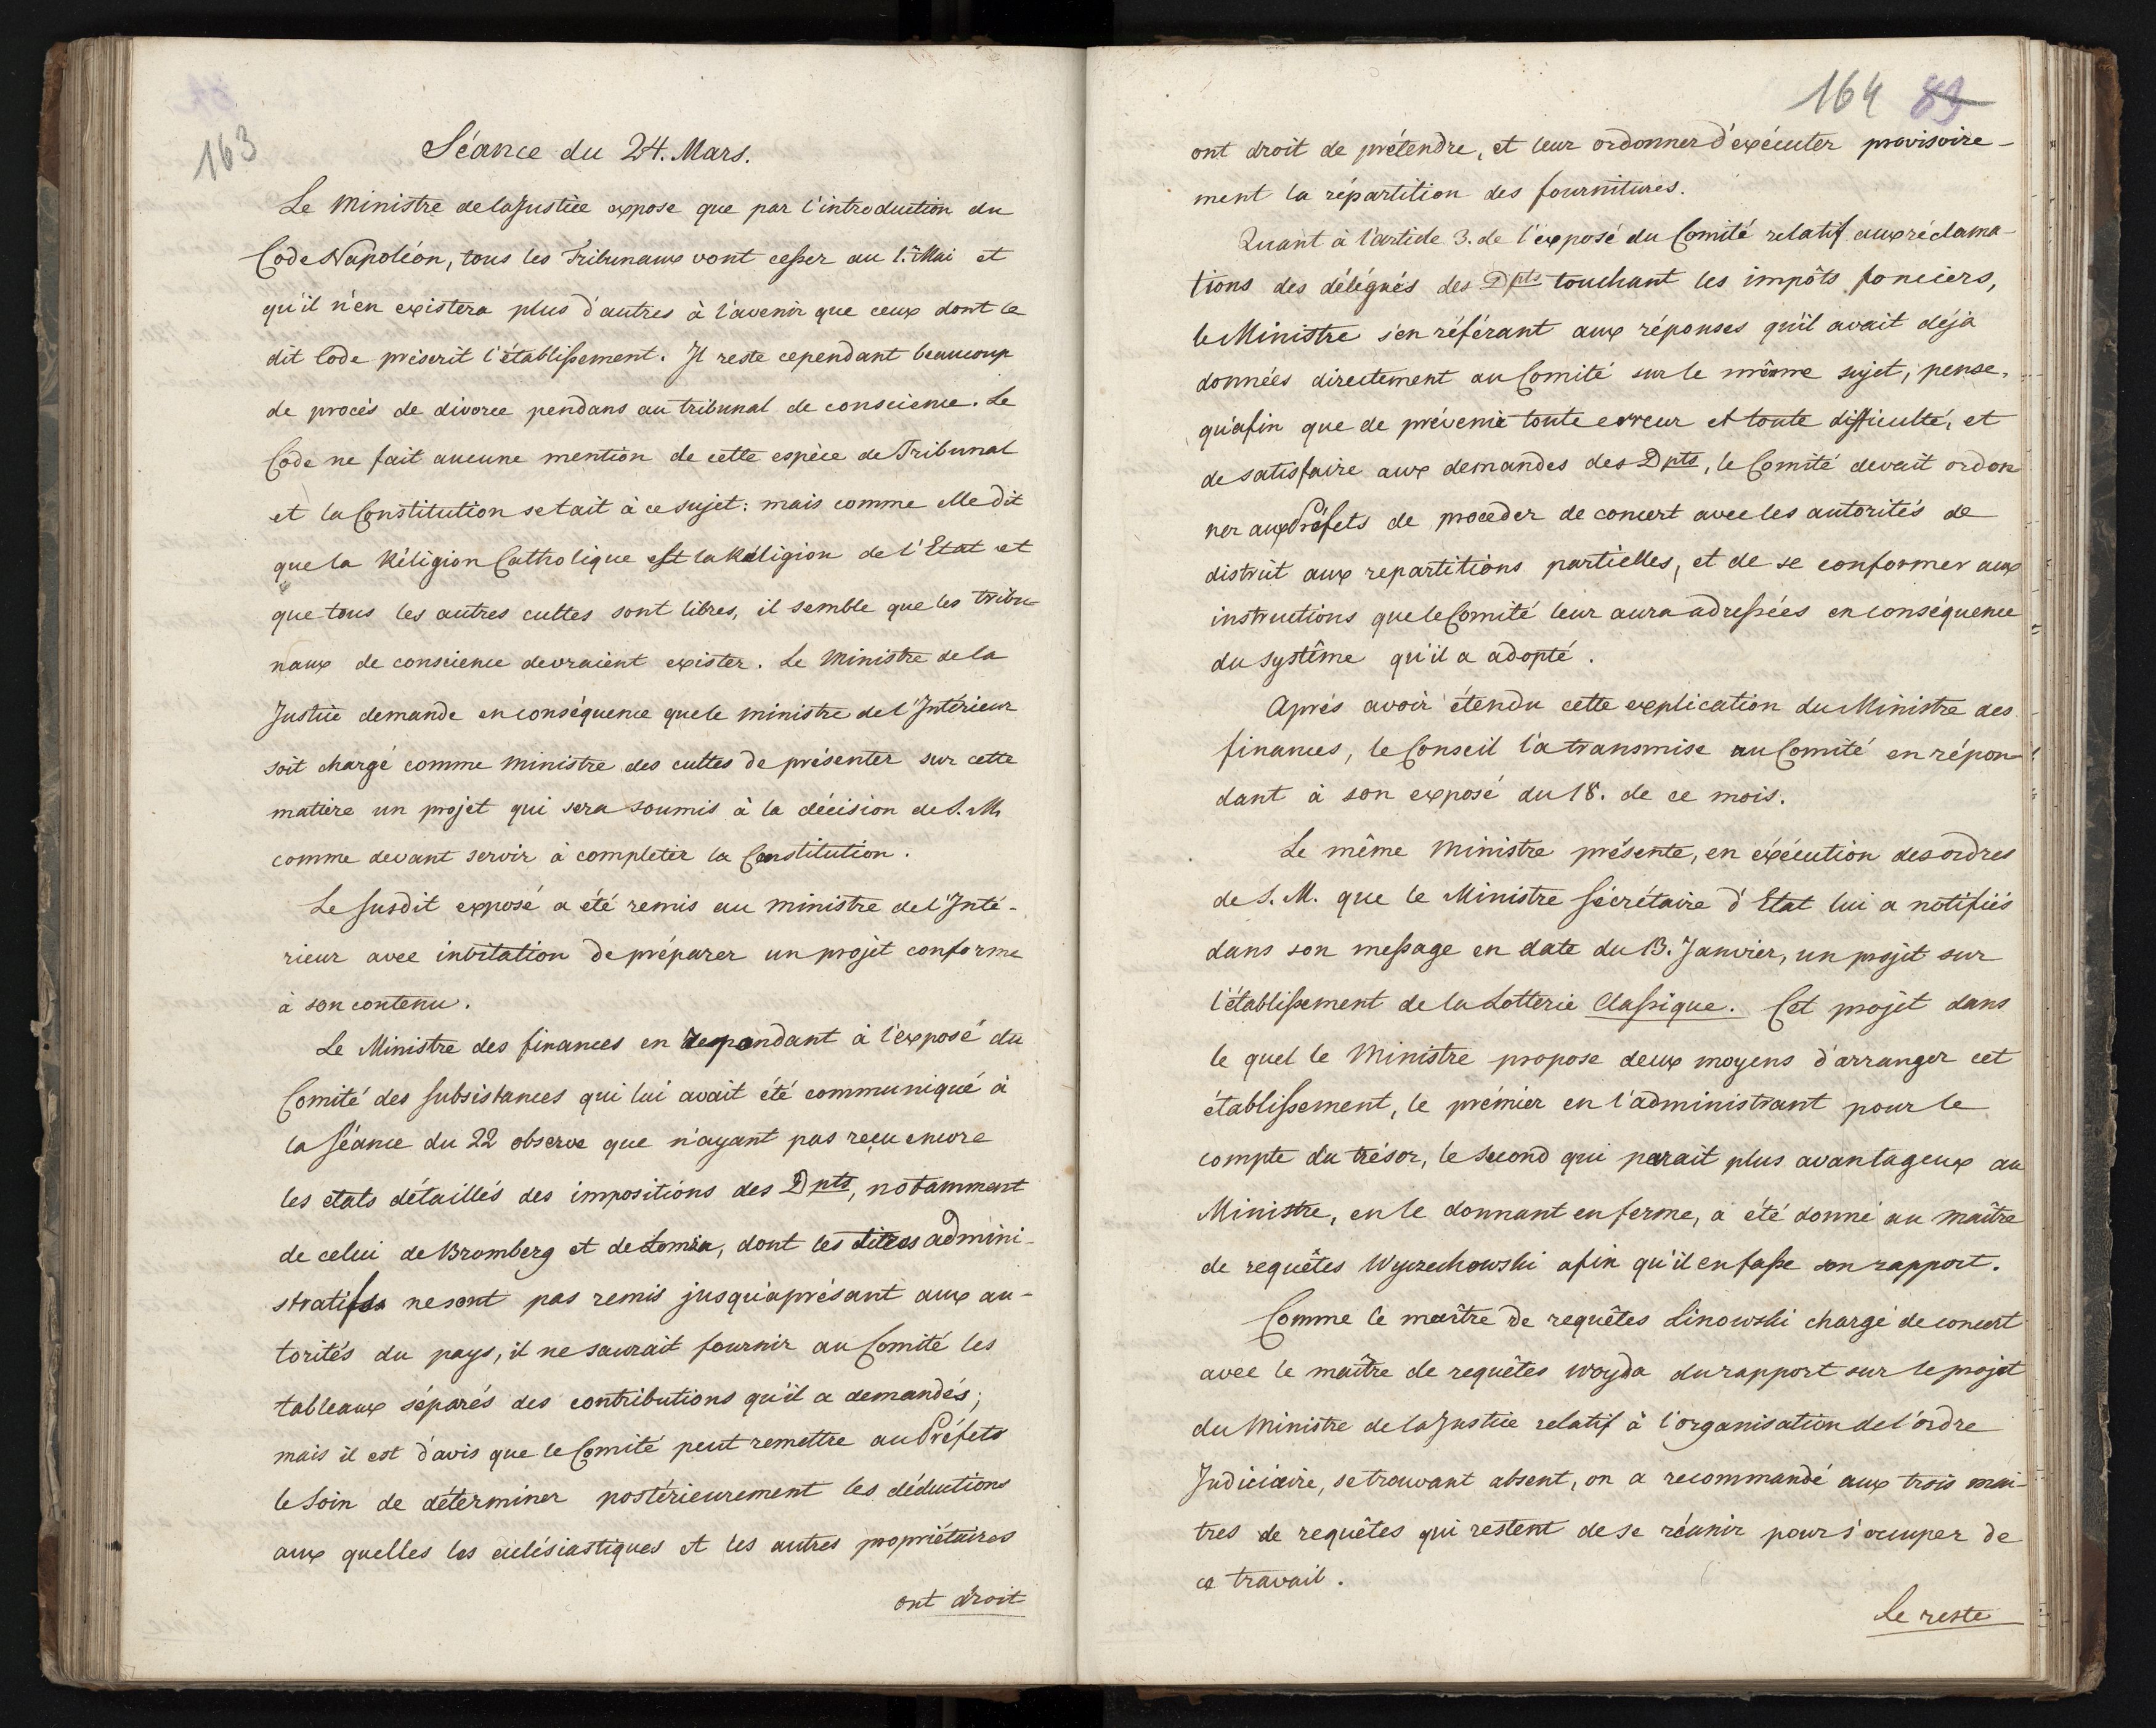 163
Séance du 24. Mars.
Le Ministre de la Justice expose que par l'introduction du
Code Napoléon, tous les Tribunaux vont cesser au 1.r Mai et
qu'il n'en existera plus d'autres à l'avenir que ceux dont le
dit Code préscrit l'établissement. Il reste cependant beaucoup
de procés de divorce pendans au tribunal de conscience. Le
Code ne fait aucune mention de cette espèce de Tribunal
et la Constitution se tait à ce sujet: mais comme elle dit
que la Réligion Catholique est la Réligion de l'Etat et
que tous les autres cultes sont libres, il semble que les tribu-
naux de conscience devraient exister. Le Ministre de la
Justice demande en conséquence que le ministre de l'Intérieur
soit chargé comme ministre des cultes de présenter sur cette
matière un projet qui sera soumis à la décision de S. M.
comme devant servir à completer la Constitution.
Le susdit exposé a été remis au ministre de l'Inté-
rieur avec invitation de préparer un projet conforme
à son contenu.
Le Ministre des finances en repondant à l'exposé du
Comité des subsistances qui lui avait été communiqué à
la Séance du 22 observe que n'ayant pas reçu encore
les etats détaillés des impositions des Dpts, notamment
de celui de Bromberg et de Lomza, dont les titres admini-
stratifs ne sont pas remis jusqu'àprésant aux au-
torités du pays, il ne saurait fournir au Comité les
tableaux séparés des contributions qu'il a demandés;
mais il est d'avis que le Comité peut remettre au Préfets
le soin de déterminer postérieurement les déductions
aux quelles les eclésiastiques et les autres propriétaires
ont droit
164 83
ont droit de prétendre, et leur ordonner d'exécuter provisoire-
ment la répartition des fournitures.
Quant à l'article 3. de l'exposé du Comité relatif aux réclama-
tions des délégués des Dpts touchant les impôts fonciers,
le Ministre s'en référant aux réponses qu'il avait déja
données directement au Comité sur le même sujet, pense,
qu'afin que de prévenir toute erreur et toute difficulté, et
de satisfaire aux demandes des Dpts, le Comité devait ordon
ner aux Préfets de proceder de concert avec les autorités de
district aux repartitions partielles, et de se conformer aux
instructions que le Comité leur aura adressées en conséquence
du systême qu'il a adopté.
Aprés avoir étendu cette explication du Ministre des
finances, le Conseil l'a transmise au Comité en répon-
dant à son exposé du 18. de ce mois.
Le même Ministre présente, en éxécution des ordres
de S. M. que le Ministre Sécrétaire d'Etat lui a notifiés
dans son message en date du 13. Janvier, un projet sur
l'établissement de la Lotterie Classique. Cet projet dans
le quel le Ministre propose deux moyens d'arranger cet
établissement, le prémier en l'administrant pour le
compte du trésor, le second qui parait plus avantageux au
Ministre, en le donnant en ferme, a été donné au maître
de requêtes Wyczechowski afin qu'il en fasse son rapport.
Comme le maître de requêtes Linowski chargé de concert
avec le maître de requêtes Woyda du rapport sur le projet
du Ministre de la Justice relatif à l'organisation de l'ordre
Judiciaire, se trouvant absent, on a recommandé aux trois mai-
tres de requêtes qui restent de se réunir pour s'occuper de
ce travail.
Le reste